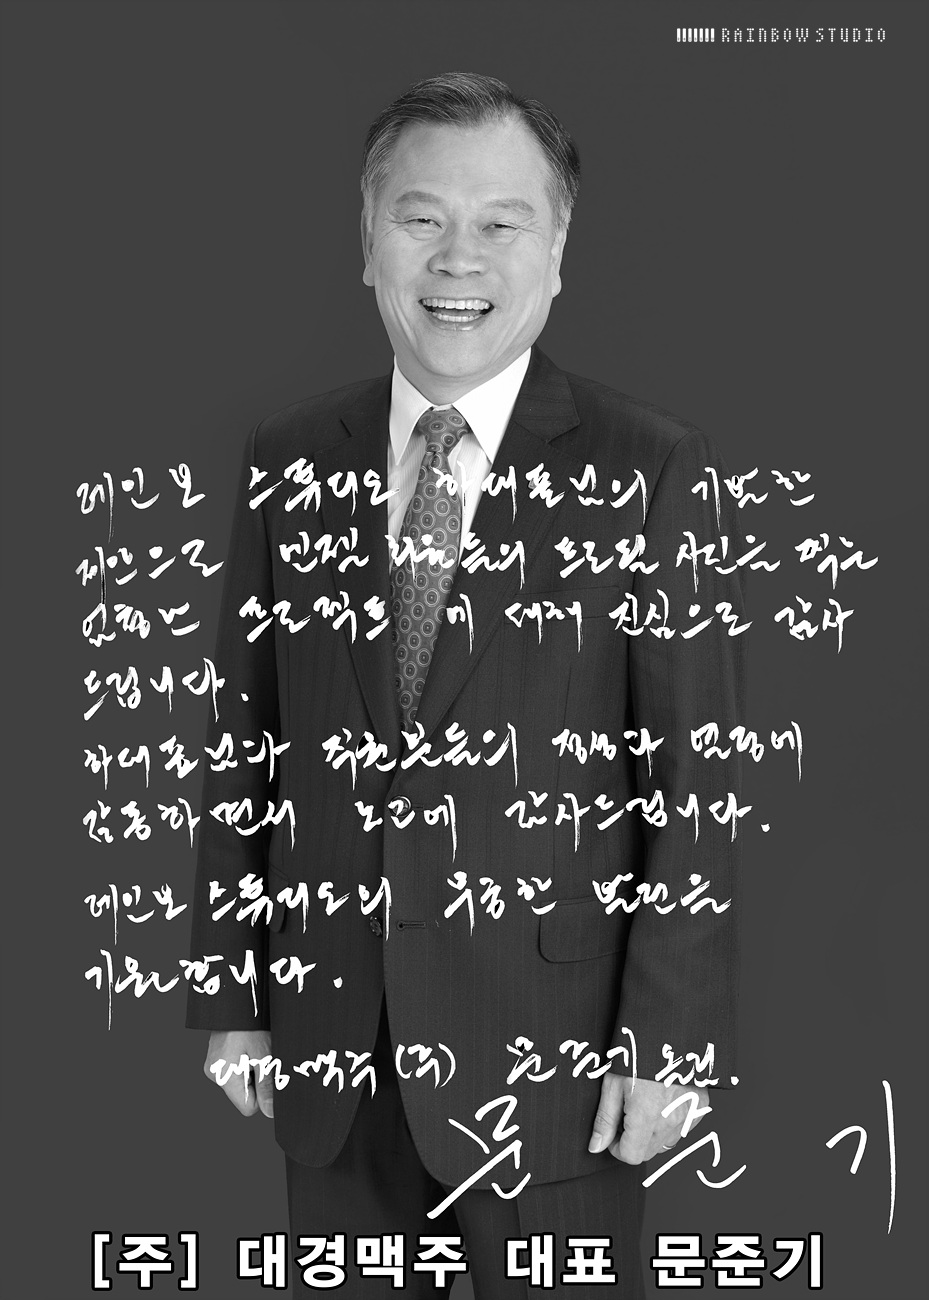 RAINBOW STUDIO
레인보 스튜디오 하대표님의 기발한
제안으로 멘젤 들의 프로필 사진을 찍는
프로젝트에 대해 진심으로 감사
드립니다.
하대표님과 직원분들의 정성과 열정에
감동하면서 노고에 감사드립니다.
레인보 스튜디오의 무궁한 발전을
기원합니다.
대경맥주(주) 문준기 올림.
문준기
[주] 대경맥주 대표 문준기